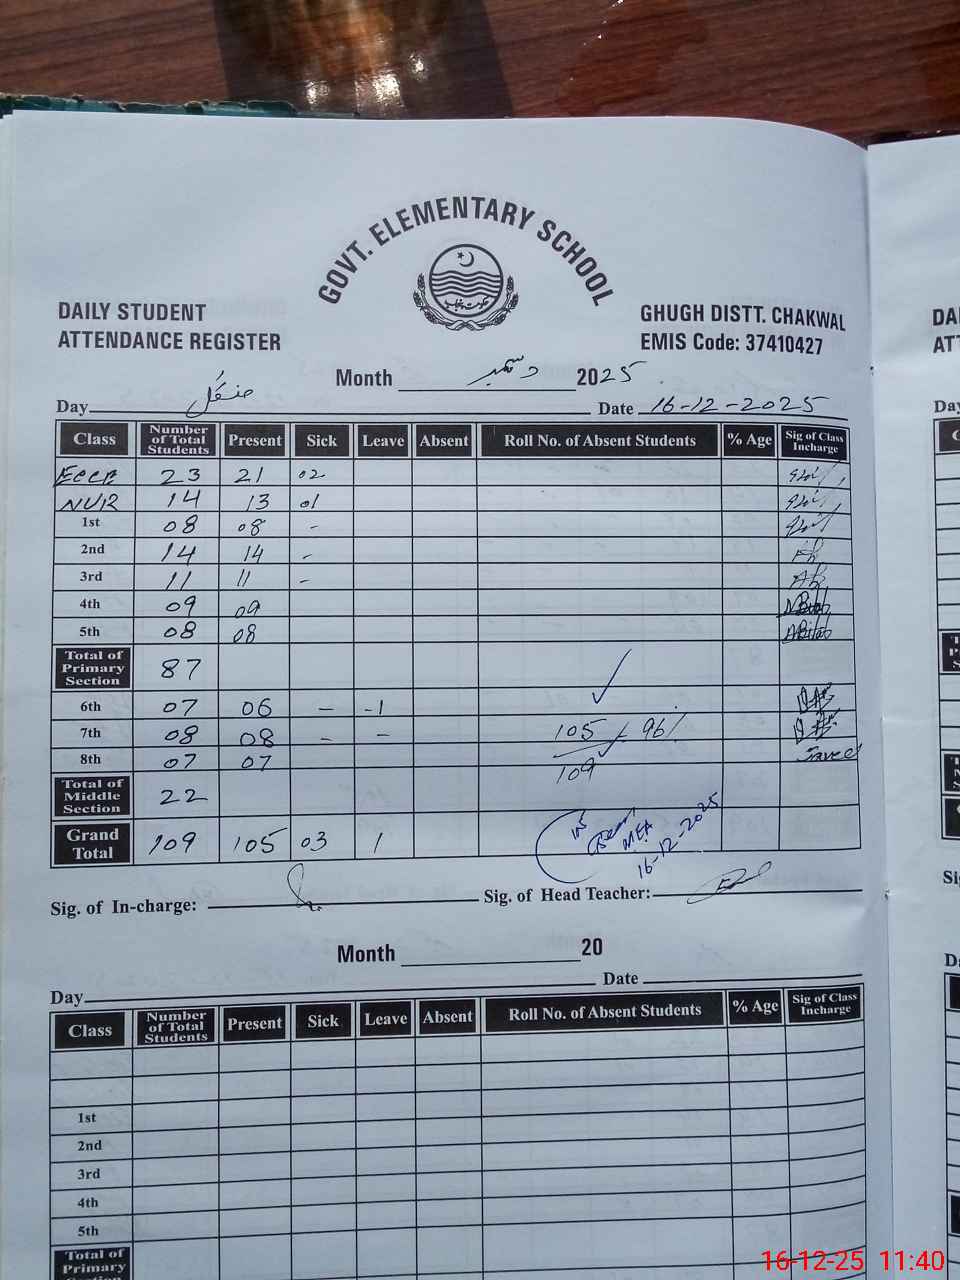 GOVT. ELEMENTARY SCHOOL
حکومت پنجاب
DAILY STUDENT
ATTENDANCE REGISTER
GHUGH DISTT. CHAKWAL
EMIS Code: 37410427
Month دسمبر 2025
Day منگل Date 16-12-2025
Class Number of Total Students Present Sick Leave Absent Roll No. of Absent Students % Age Sig of Class Incharge
ECCE 23 21 02
NUR 14 13 01
1st 08 08 -
2nd 14 14 -
3rd 11 11 -
4th 09 09
5th 08 08
Total of Primary Section 87
6th 07 06 - -1
7th 08 08 - - 105 96%
8th 07 07 109
Total of Middle Section 22
Grand Total 109 105 03 1
MEA
16-12-2025
Sig. of In-charge: Sig. of Head Teacher:
Month 20
Day Date
Class Number of Total Students Present Sick Leave Absent Roll No. of Absent Students % Age Sig of Class Incharge
1st
2nd
3rd
4th
5th
Total of Primary
16-12-25 11:40